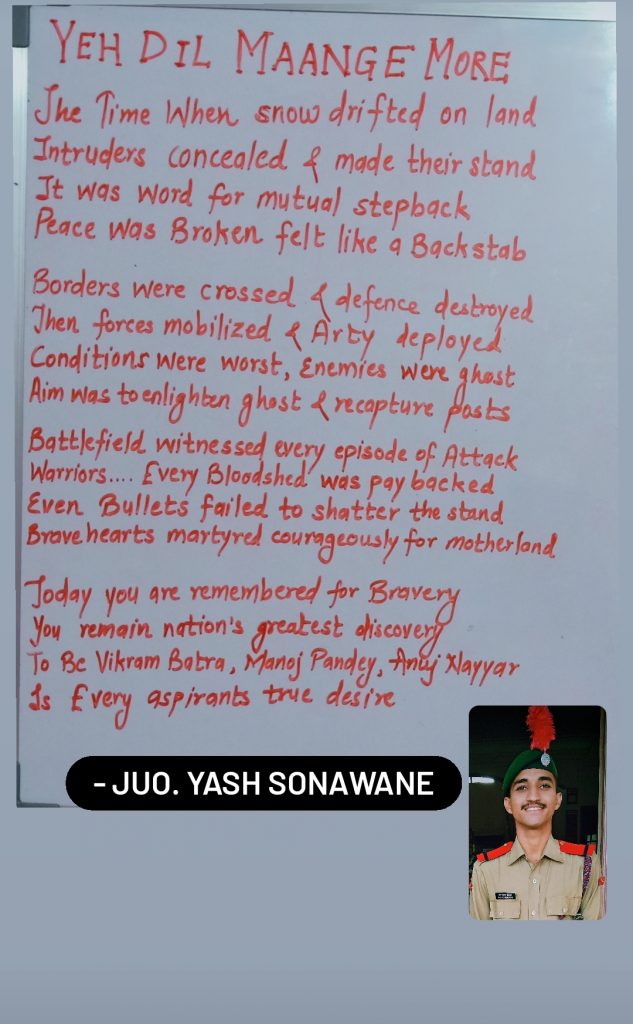 YEH DIL MAANGE MORE
The Time When snow drifted on land
Intruders concealed & made their stand
It was word for mutual stepback
Peace was Broken felt like a Backstab
Borders were crossed & defence destroyed
Then forces mobilized & Arty deployed
Conditions were worst, Enemies were ghost
Aim was to enlighten ghost & recapture posts
Battlefield witnessed every episode of Attack
Warriors.... Every Bloodshed was pay backed
Even Bullets failed to shatter the stand
Brave hearts martyred courageously for motherland
Today you are remembered for Bravery
You remain nation's greatest discovery
To Be Vikram Batra, Manoj Pandey, Anuj Nayyar
Is Every aspirants true desire
- JUO. YASH SONAWANE